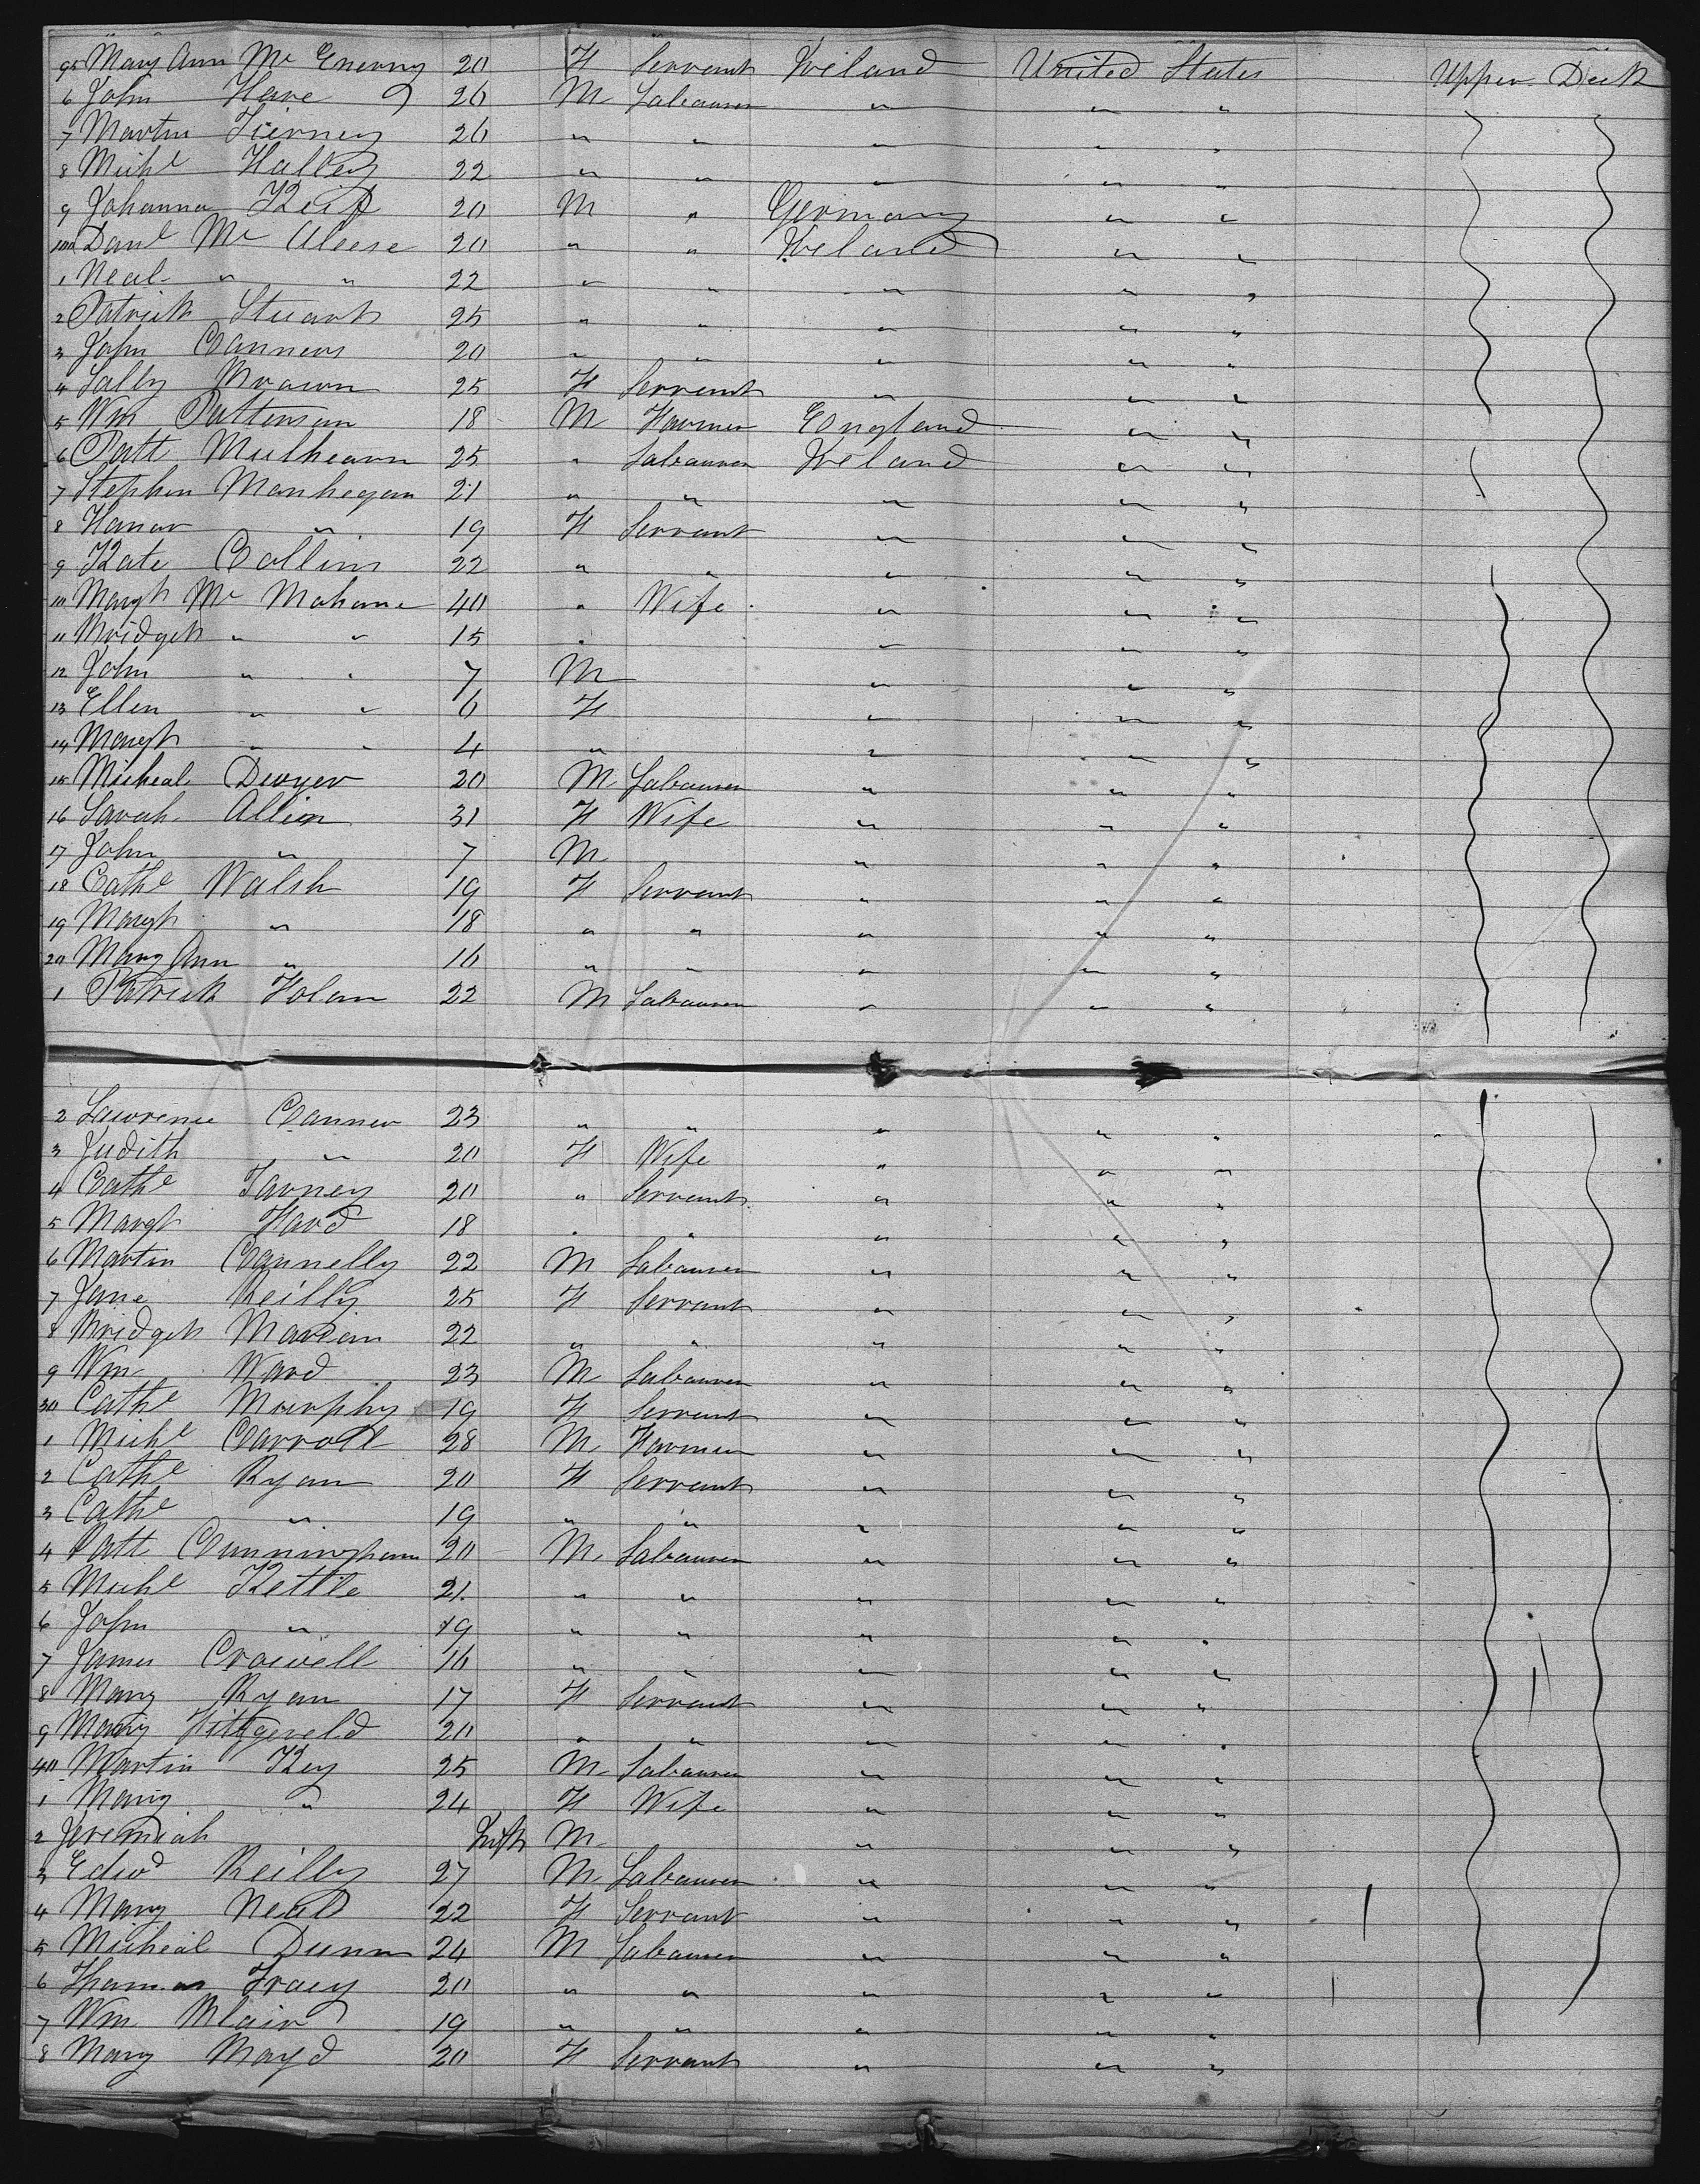 95 Mary Ann Mc Enerny 20 F Servant Ireland United States Upper Deck
6 John Hare 26 M Labourer " " "
7 Martin Tierney 26 " " " " "
8 Michl Halley 22 " " " " "
9 Johanna Keif 20 M " Germany " "
100 Danl Mc Aleese 20 " " Ireland " "
1 Neal " " 22 " " " " "
2 Patrick Stuart 25 " " " " "
3 John Connors 20 " " " " "
4 Sally Brown 25 F Servant " " "
5 Wm Patterson 18 M Farmer England " "
6 Patt Mulhearn 25 " Labourer Ireland " "
7 Stephen Monhegan 21 " " " " "
8 Hanor " 19 F Servant " " "
9 Kate Collins 22 " " " " "
10 Margt Mc Mahone 40 " Wife " " "
11 Bridget " " 15 " " " "
12 John " " 7 M " " "
13 Ellen " " 6 F " " "
14 Margt " " 4 " " " "
15 Micheal Dwyer 20 M Labourer " " "
16 Sarah Allien 31 F Wife " " "
17 John " 7 M " " "
18 Cathe Walsh 19 F Servant " " "
19 Margt " 18 " " " " "
20 Mary Ann " 16 " " " " "
1 Patrick Folan 22 M Labourer " " "
2 Lawrence Connor 23 " " " " "
3 Judith " 20 F Wife " " "
4 Cathe Tarney 20 " Servant " " "
5 Margt Ford 18 " " " " "
6 Martin Connelly 22 M Labourer " " "
7 Jane Reilly 25 F Servant " " "
8 Bridget Marian 22 " " " " "
9 Wm Ward 23 M Labourer " " "
30 Cathe Murphy 19 F Servant " " "
1 Michl Carroll 28 M Farmer " " "
2 Cathe Ryan 20 F Servant " " "
3 Cathe " 19 " " " " "
4 Patt Cunningham 20 M Labourer " " "
5 Michl Kettle 21 " " " " "
6 John " 19 " " " " "
7 James Crowell 16 " " " " "
8 Mary Ryan 17 F Servant " " "
9 Mary Fittgereld 20 " " " " "
40 Martin Key 25 M Labourer " " "
1 Mary " 24 F Wife " " "
2 Jeremiah Inft M " " "
3 Edwd Reilly 27 M Labourer " " "
4 Mary Neal 22 F Servant " " "
5 Micheal Dunn 24 M Labourer " " "
6 Thomas Tracy 20 " " " " "
7 Wm Blair 19 " " " " "
8 Mary Boyd 20 F Servant " " "